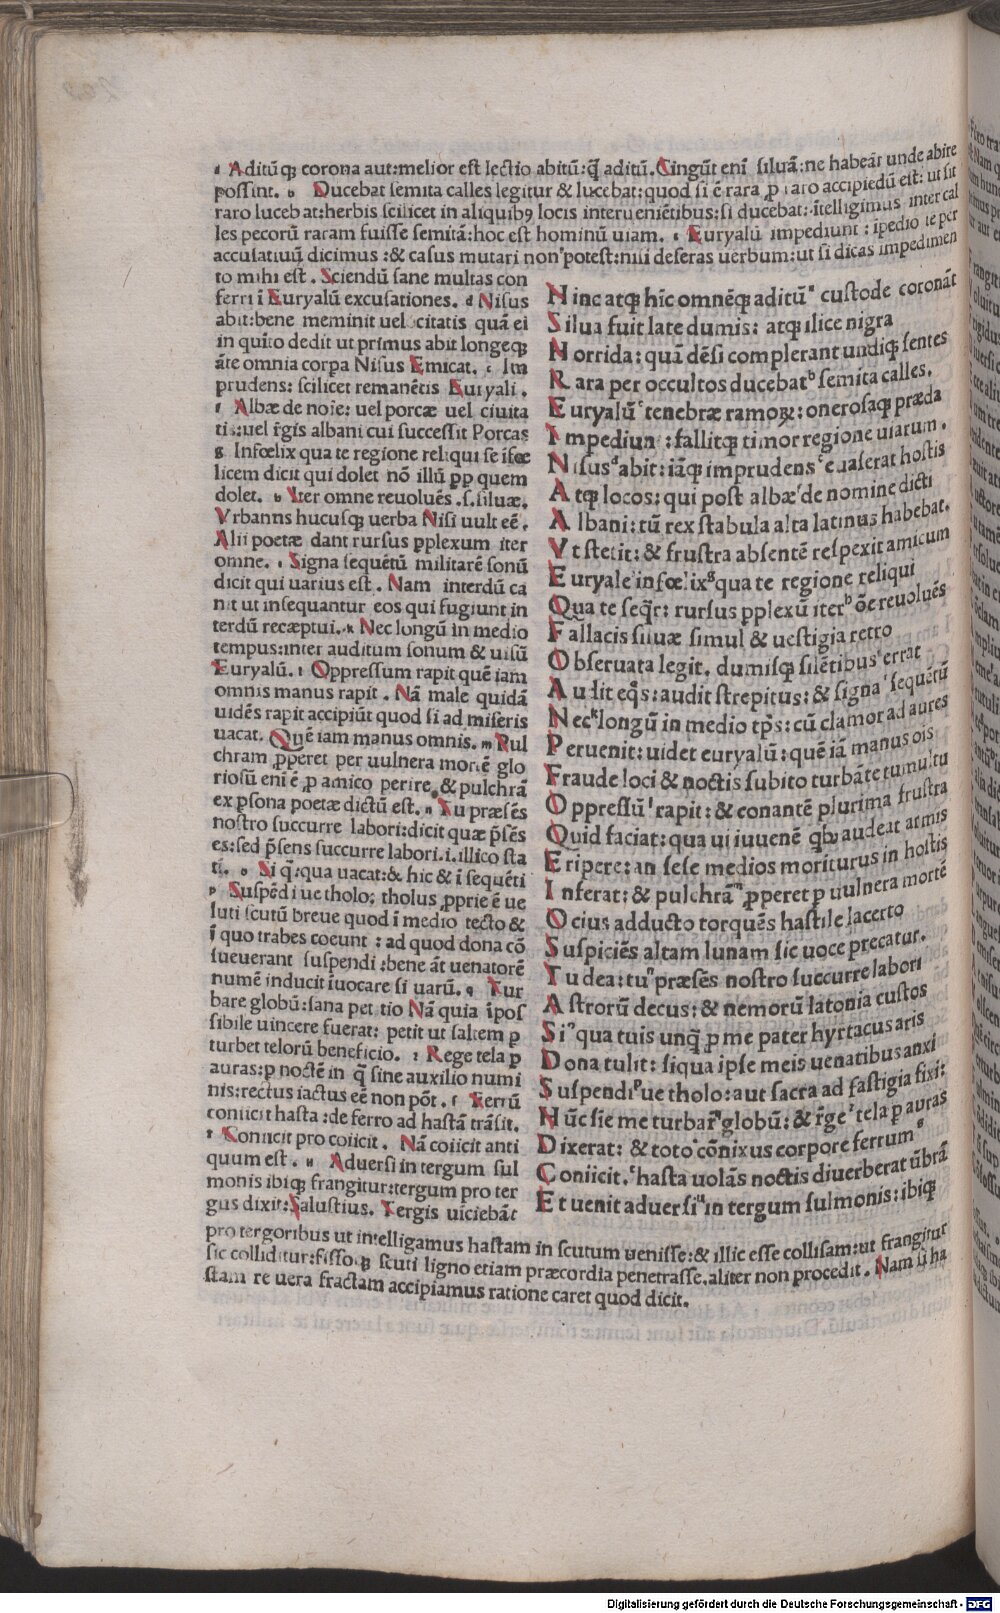 a Aditūq; corona aut:melior est lectio abitū:q̄ aditū. Cingūt enī siluā:ne habeāt unde abire
possint. b Ducebat semita calles legitur & lucebat:quod si ē rara ꝑ raro accipiēdū est: ut sit
raro luceb at:herbis scilicet in aliquibꝰ locis interueniētibus:si ducebat:ītelligimus inter cal
les pecorū raram fuisse semitā:hoc est hominū uiam. c Euryalū impediunt : ipedio te per
accusatiuū dicimus :& casus mutari non potest:nisi deseras uerbum:ut si dicas impedimen
to mihi est. Sciendū sane multas con
ferri ī Euryalū excusationes. d Nisus
abit:bene meminit uelocitatis quā ei
in quīto dedit ut prīmus abit longeq;
āte omnia corpa Nisus Emicat. e Im
prudens: scilicet remanētis Euryali.
f Albæ de noīe: uel porcæ uel ciuita
tis:uel r̄gis albani cui successit Porcas
g Infœlix qua te regione reliqui se īfœ
licem dicit qui dolet nō illū ꝓp quem
dolet. h Iter omne reuoluēs .s.siluæ.
Vrbanns hucusq; uerba Nisi uult eē.
Alii poetæ dant rursus ꝑplexum iter
omne. i Signa sequētū militarē sonū
dicit qui uarius est. Nam interdū ca
nit ut insequantur eos qui fugiunt in
terdū recæptui. k Nec longū in medio
tempus:inter auditum sonum & uisū
Euryalū. l Oppressum rapit quē iam
omnis manus rapit. Nā male quidā
uidēs rapit accipiūt quod si ad miseris
uacat. Quē iam manus omnis. m Pul
chram ꝓperet per uulnera mortē glo
riosū enī ē ꝓ amico perire, & pulchrā
ex ꝑsona poetæ dictū est. n Tu præsēs
nostro succurre labori:dicit quæ p̄sēs
es:sed p̄sens succurre labori.i.illico sta
ti. o Si q̄:qua uacat:& hic & ī sequēti
p Suspēdi ue tholo: tholus ꝓprie ē ue
luti scutū breue quod ī medio tecto &
ī quo trabes coeunt : ad quod dona cō
sueuerant suspendi :bene āt uenatorē
numē inducit īuocare si uarū. q Tur
bare globū:sana pet tio Nā quia īpos
sibile uincere fuerat: petit ut saltem ꝑ
turbet telorū beneficio. r Rege tela ꝑ
auras:ꝑ noctē in q̄ sine auxilio numi
nis:rectus iactus eē non pōt. s Ferrū
coniicit hasta :de ferro ad hastā trāsit.
t Connicit pro coiicit. Nā coiicit anti
quum est. u Aduersi in tergum sul
monis ibiq; frangitur:tergum pro ter
gus dixit:Salustius. Tergis uiciebāt
pro tergoribus ut intelligamus hastam in scutum uenisse:& illic esse collisam:ut frangitur
sic colliditur:fissoq; scuti ligno etiam præcordia penetrasse.aliter non procedit. Nam si ha
stam re uera fractam accipiamus ratione caret quod dicit.
Hinc atq; hīc omnēq; aditū a custode coronāt
Silua fuit late dumis: atq; ilice nigra
Horrida: quā dēsi complerant undiq; sentes
Rara per occultos ducebat b semita calles.
Euryalū c tenebræ ramoꝝ: onerosaq; præda
Impediunt : fallitq; timor regione uiarum.
Nisus d abit: iāq; imprudens e euaserat hostis
Atq; locos: qui post albæ f de nomine dicti
Albani: tū rex stabula alta latinus habebat.
Vt stetit: & frustra absentē respexit amicum
Euryale infœlix g qua te regione reliqui
Qua te seqr̄: rursus ꝑplexū iter h oē reuoluēs
Fallacis siluæ simul & uestigia retro
Obseruata legit, dumisq; silētibus errat
Audit eqōs: audit strepitus: & signa i sequētū
Nec k longū in medio tp̄s: cū clamor ad aures
Peruenit: uidet euryalū: quē iā manus ois
Fraude loci & noctis subito turbāte tumultu
Oppressū l rapit: & conantē plurima frustra
Quid faciat: qua ui iuuenē qb; audeat armis
Eripere: an sese medios moriturus in hostis
Inferat: & pulchrā m ꝓperet ꝑ uulnera mortē
Ocius adducto torquēs hastile lacerto
Suspiciēs altam lunam sic uoce precatur.
Tu dea: tu n præsēs nostro succurre labori
Astrorū decus: & nemorū latonia custos
Si o qua tuis unq̄ ꝓ me pater hyrtacus aris
Dona tulit: siqua ipse meis uenatibus anxi
Suspendi p ue tholo: aut sacra ad fastigia fixi:
Hūc sie me turbar̄ q globū: & r̄ge r tela ꝑ auras
Dixerat: & toto cōnixus corpore ferrum s
Coniicit. t hasta uolās noctis diuerberat ūbrā
Et uenit aduersi u in tergum sulmonis: ibiq;
Digitalisierung gefördert durch die Deutsche Forschungsgemeinschaft - DFG